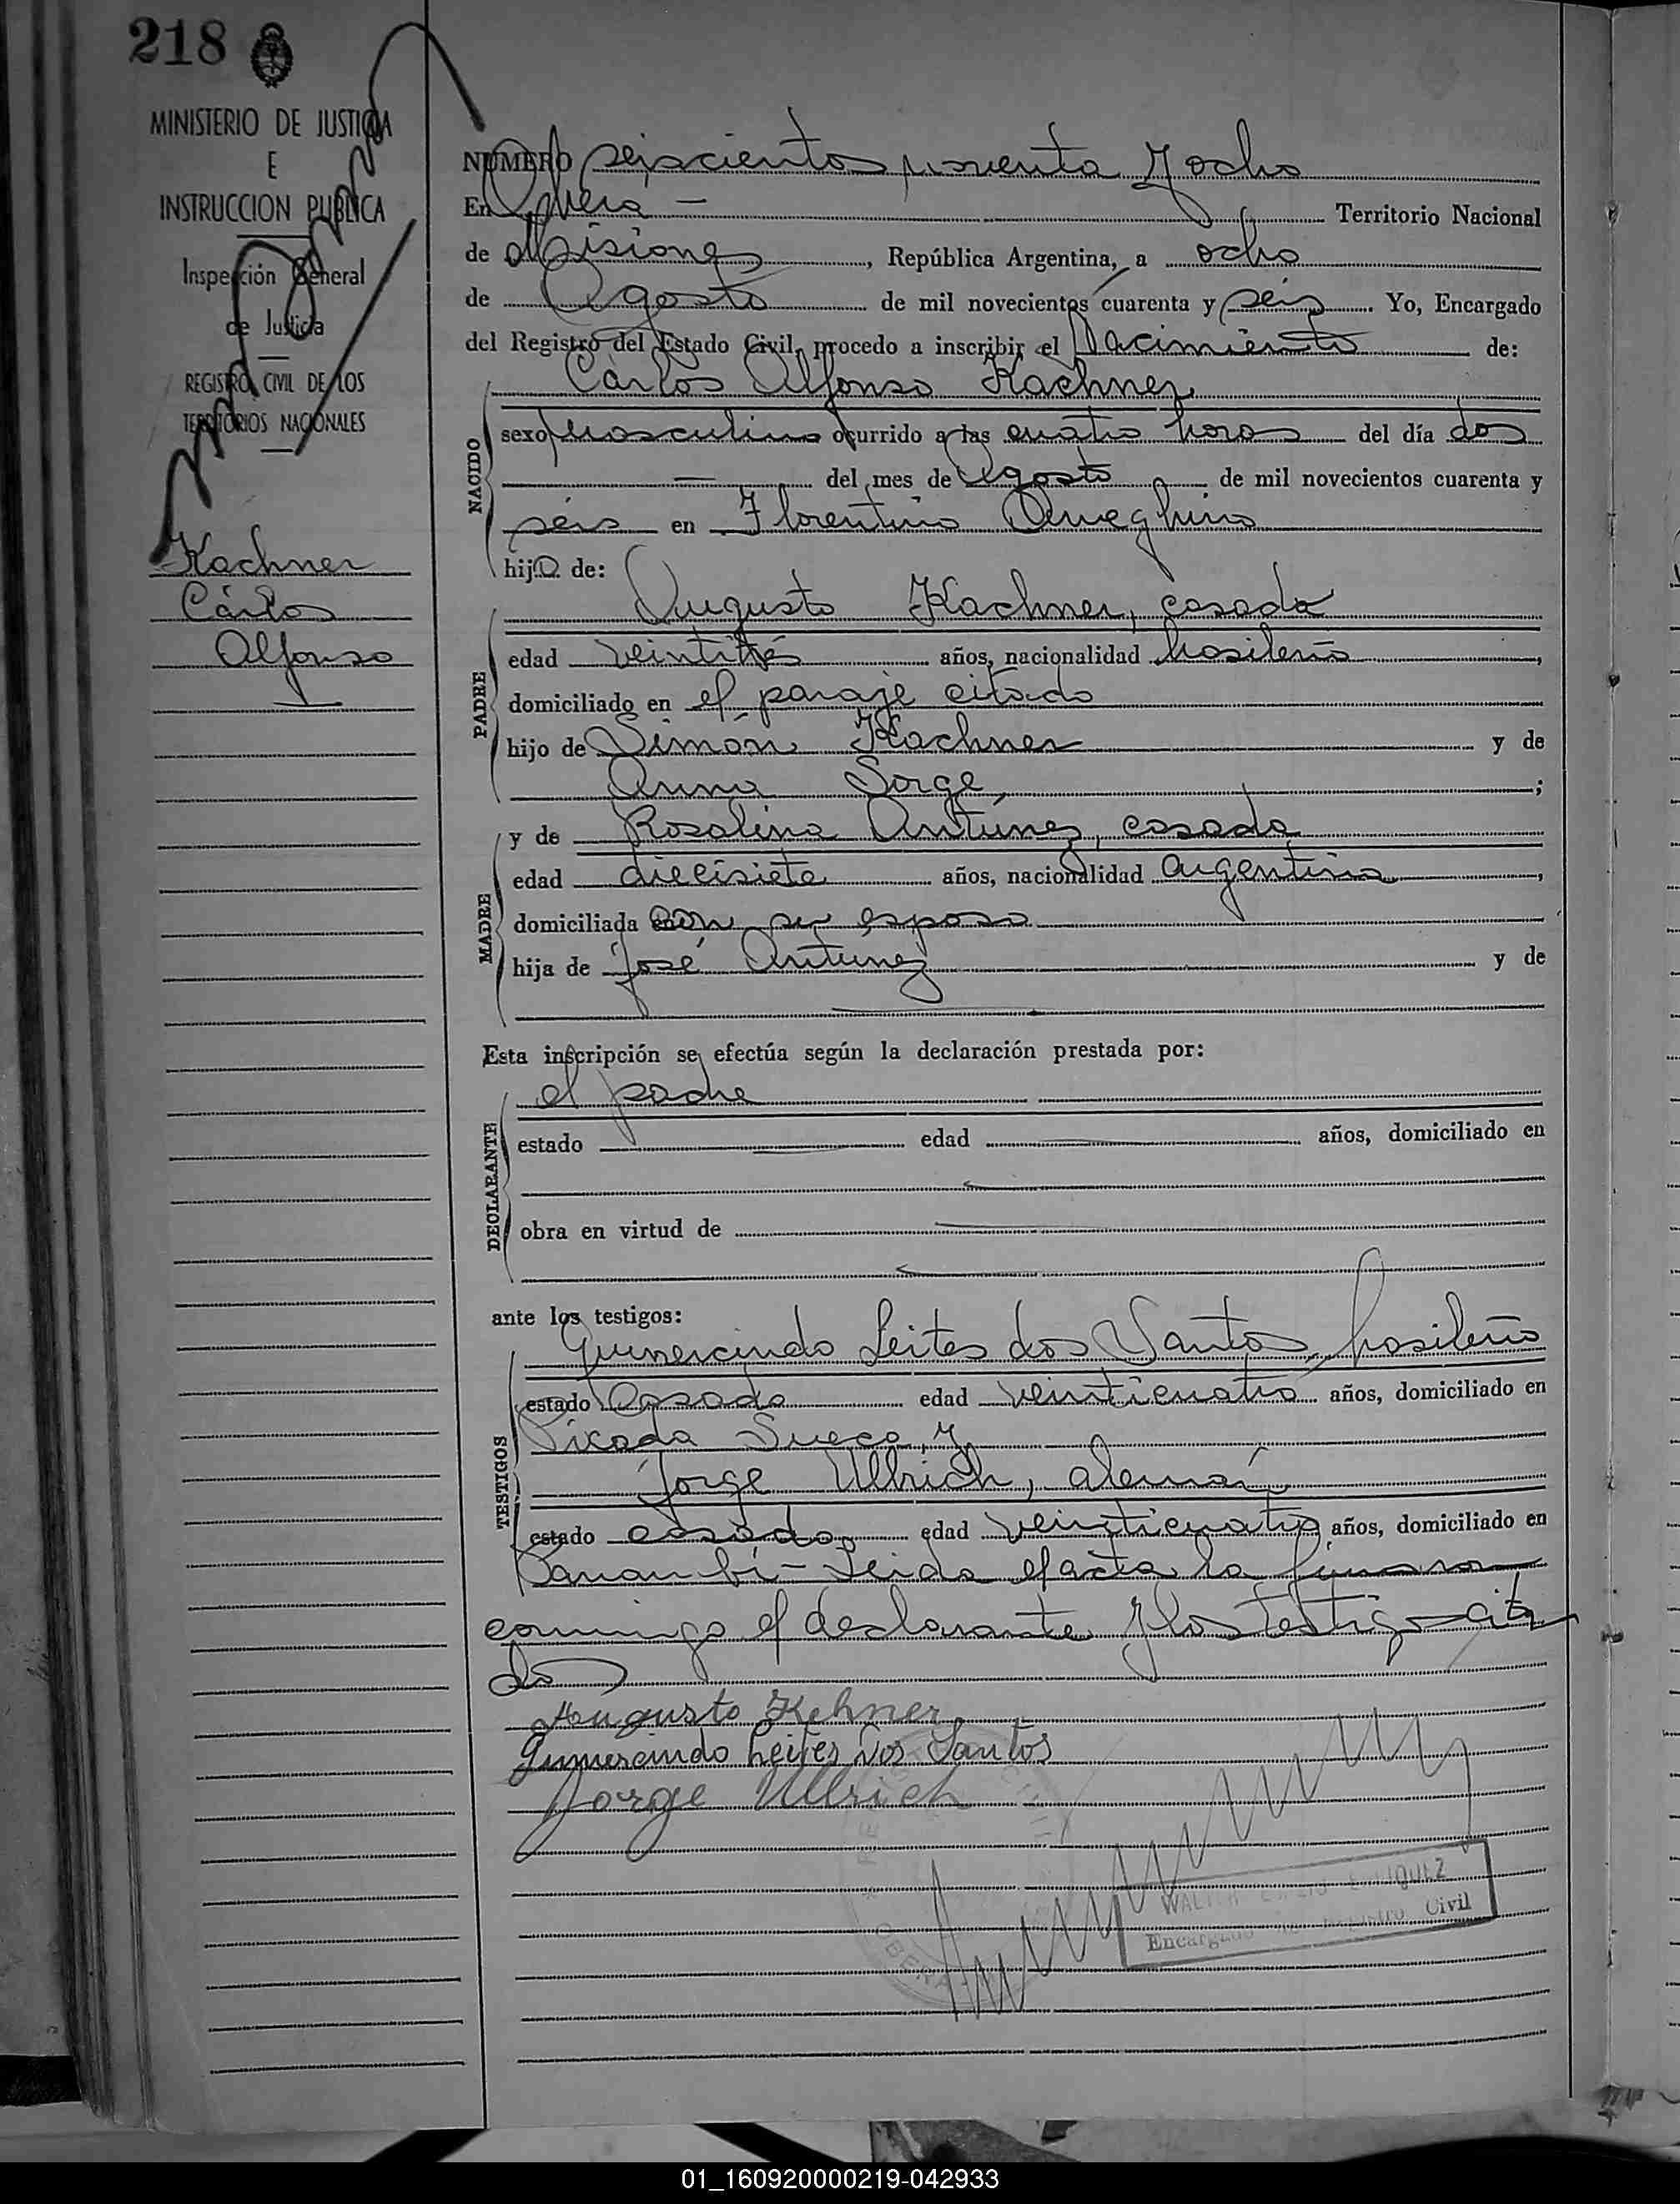 218
MINISTERIO DE JUSTICIA
E
INSTRUCCION PUBLICA
Inspección General
de Justicia
REGISTRO CIVIL DE LOS
TERRITORIOS NACIONALES
Kachner
Cárlos
Alfonso
NUMERO seiscientos noventa y ocho
En Oberá - Territorio Nacional
de Misiones, República Argentina, a ocho
de Agosto de mil novecientos cuarenta y seis. Yo, Encargado
del Registro del Estado Civil, procedo a inscribir el Nacimiento de:
Cárlos Alfonso Kachner
NACIDO
sexo Masculino ocurrido a las cuatro horas del día dos
del mes de Agosto de mil novecientos cuarenta y
seis en Florentino Ameghino
hijo de:
PADRE
Augusto Kachner, casado
edad veintitrés años, nacionalidad brasileño,
domiciliado en el paraje citado
hijo de Simón Kachner y de
Anna Sorge;
MADRE
y de Rosalina Antunez, casada
edad diecisiete años, nacionalidad argentina,
domiciliada con su esposo
hija de José Antunez y de
Esta inscripción se efectúa según la declaración prestada por:
DECLARANTE
el padre
estado edad años, domiciliado en
obra en virtud de
ante los testigos:
TESTIGOS
Gumercindo Leites dos Santos, brasileño
estado casado edad veinticuatro años, domiciliado en
Picada Sueca, y
Jorge Ullrich, alemán
estado casado edad veinticuatro años, domiciliado en
Panambí - Leida el acta la firmaron
conmigo el declarante y los testigos cita
dos
Augusto Kehner
Gumercindo Leites Dos Santos
Jorge Ullrich
OBERA
WALTER
Encargado Registro Civil
01_160920000219-042933